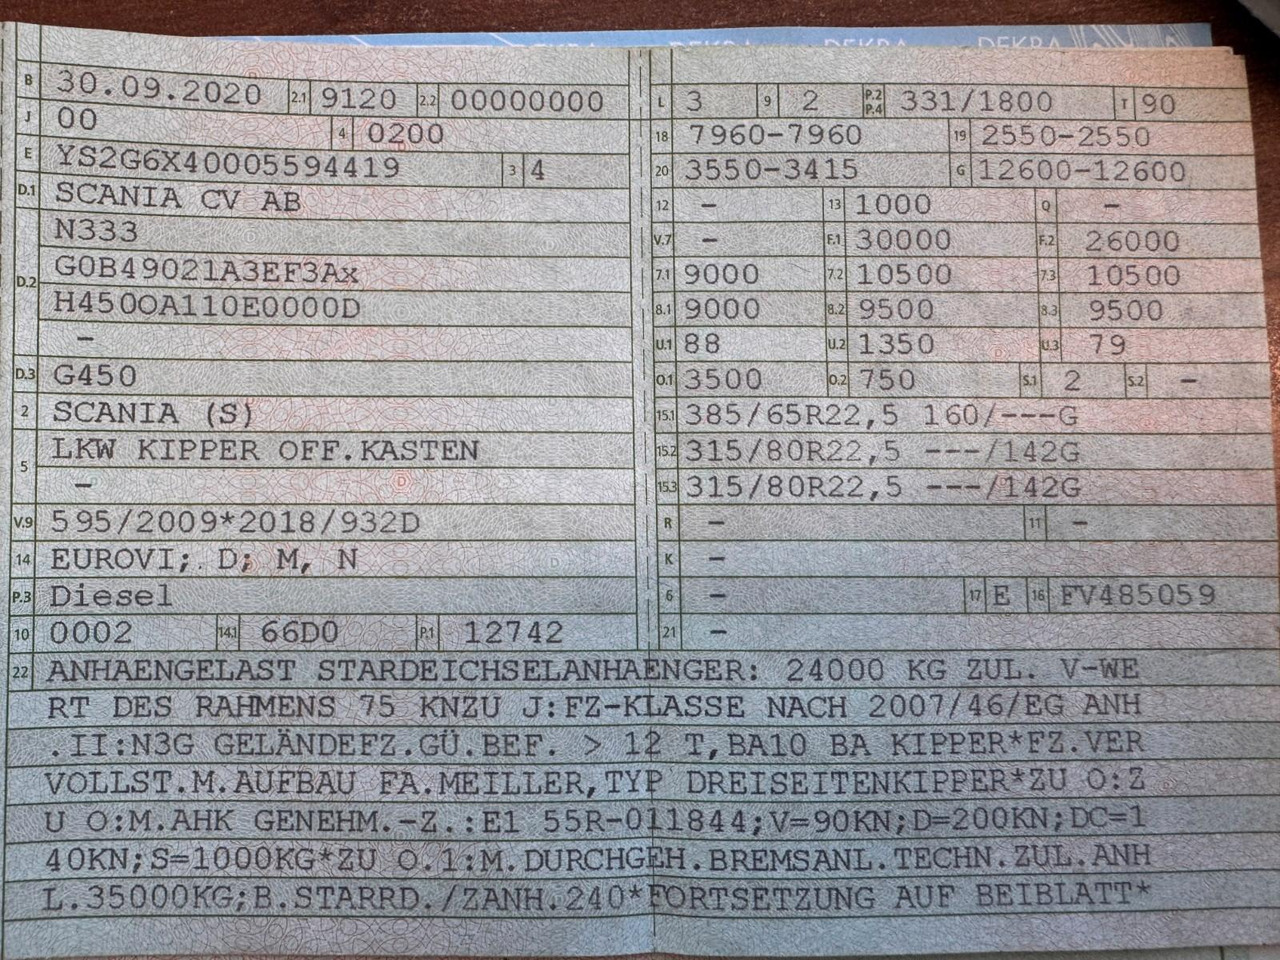 DEKRA DEKRA DEKRA DEKRA
B 30.09.2020 2.1 9120 2.2 00000000
J 00 4 0200
E YS2G6X40005594419 3 4
D.1 SCANIA CV AB
N333
D.2 G0B49021A3EF3Ax
H450OA110E0000D
–
D.3 G450
2 SCANIA (S)
5 LKW KIPPER OFF.KASTEN
–
V.9 595/2009*2018/932D
14 EUROVI; D; M, N
P.3 Diesel
10 0002 14.1 66D0 P.1 12742
L 3 9 2 P.2 P.4 331/1800 T 90
18 7960-7960 19 2550-2550
20 3550-3415 G 12600-12600
12 – 13 1000 Q –
V.7 – F.1 30000 F.2 26000
7.1 9000 7.2 10500 7.3 10500
8.1 9000 8.2 9500 8.3 9500
U.1 88 U.2 1350 U.3 79
O.1 3500 O.2 750 S.1 2 S.2 –
15.1 385/65R22,5 160/---G
15.2 315/80R22,5 ---/142G
15.3 315/80R22,5 ---/142G
R – 11 –
K –
6 – 17 E 16 FV485059
21 –
22 ANHAENGELAST STARDEICHSELANHAENGER: 24000 KG ZUL. V-WE
RT DES RAHMENS 75 KNZU J:FZ-KLASSE NACH 2007/46/EG ANH
.II:N3G GELÄNDEFZ.GÜ.BEF. > 12 T,BA10 BA KIPPER*FZ.VER
VOLLST.M.AUFBAU FA.MEILLER,TYP DREISEITENKIPPER*ZU O:Z
U O:M.AHK GENEHM.-Z.:E1 55R-011844;V=90KN;D=200KN;DC=1
40KN;S=1000KG*ZU O.1:M.DURCHGEH.BREMSANL.TECHN.ZUL.ANH
L.35000KG;B.STARRD./ZANH.240*FORTSETZUNG AUF BEIBLATT*